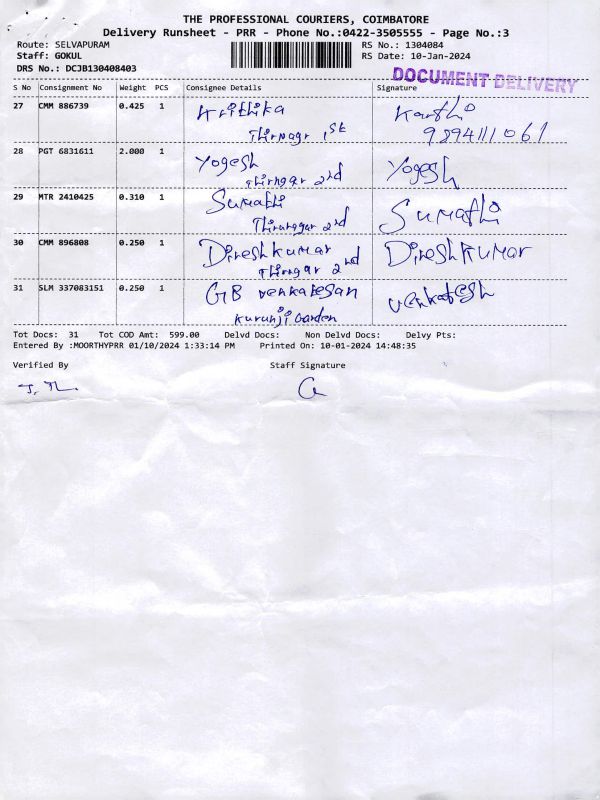 THE PROFESSIONAL COURIERS, COIMBATORE
Delivery Runsheet - PRR - Phone No.:0422-3505555 - Page No.:3
Route: SELVAPURAM
RS No.: 1304084
Staff: GOKUL
RS Date: 10-Jan-2024
DRS No.: DCJB130408403
DOCUMENT DELIVERY
S No Consignment No Weight PCS Consignee Details Signature
27 CMM 886739 0.425 1 Krithika
Thirnagr 1st
9894111061
28 PGT 6831611 2.000 1 Yogesh Yogesh
Thirngar 2nd
29 MTR 2410425 0.310 1 Sumathi Sumathi
2nd
30 CMM 896808 0.250 1 Direshkumar Direshkumar
Thirngar 2nd
31 SLM 337083151 0.250 1 GB venkatesan venkatesh
kurunji Garden
Tot Docs: 31 Tot COD Amt: 599.00 Delvd Docs: Non Delvd Docs: Delvy Pts:
Entered By :MOORTHYPRR 01/10/2024 1:33:14 PM Printed On: 10-01-2024 14:48:35
Verified By Staff Signature